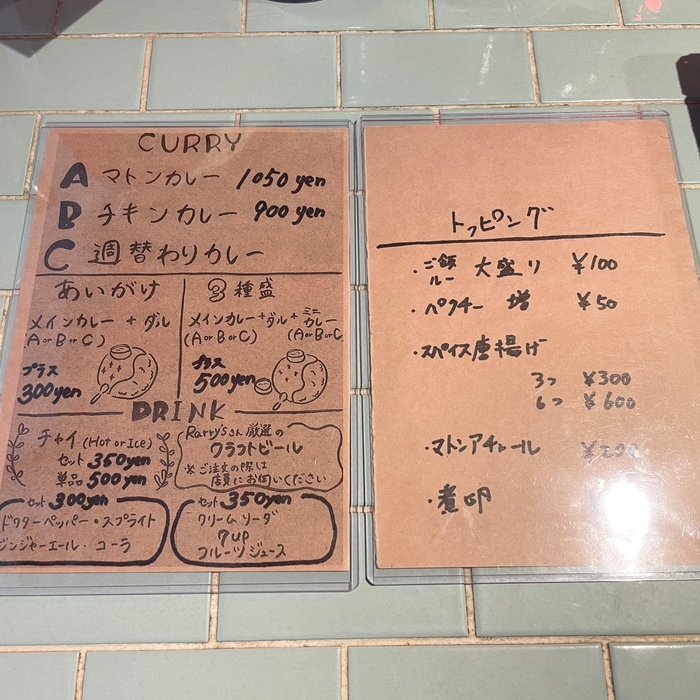 CURRY
A マトンカレー 1050 yen
B チキンカレー 900 yen
C 週替わりカレー
あいがけ
メインカレー + ダル
(A or B or C)
プラス
300yen
3種盛
メインカレー+ダル+ミニカレー
(A or B or C) (A or B or C
プラス
500yen
DRINK
チャイ (Hot or Ice)
セット 350yen
単品 500yen
Rarry'sさん厳選の
クラフトビール
※ご注文の際は
店員にお伺いください
セット 300yen
ドクターペッパー・スプライト
ジンジャーエール・コーラ
セット 350yen
クリームソーダ
7up
フルーツジュース
トッピング
・ご飯 ルー 大盛り ¥100
・パクチー 増 ¥50
・スパイス唐揚げ
3つ ¥300
6つ ¥600
・マトンアチャール ¥200
・煮卵